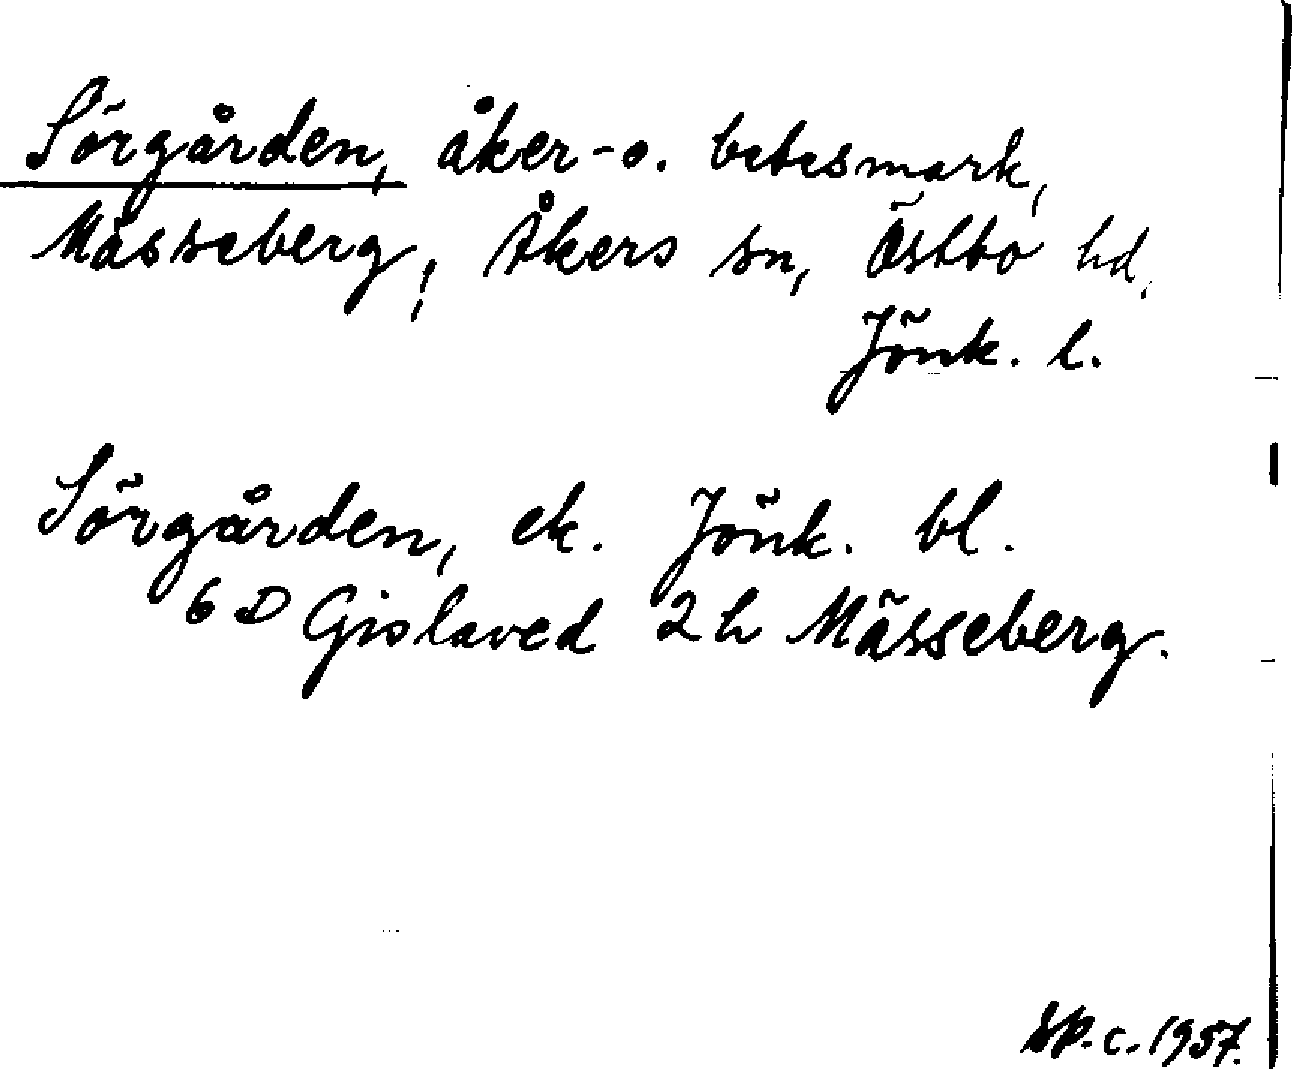 Sörgården, åker- o. betesmark,
Mässeberg, Åkers sn, Östbo hd,
Jönk. l.
Sörgården, ek. Jönk. bl.
6 D Gislaved 2 h Mässeberg.
Sp. c. 1957.